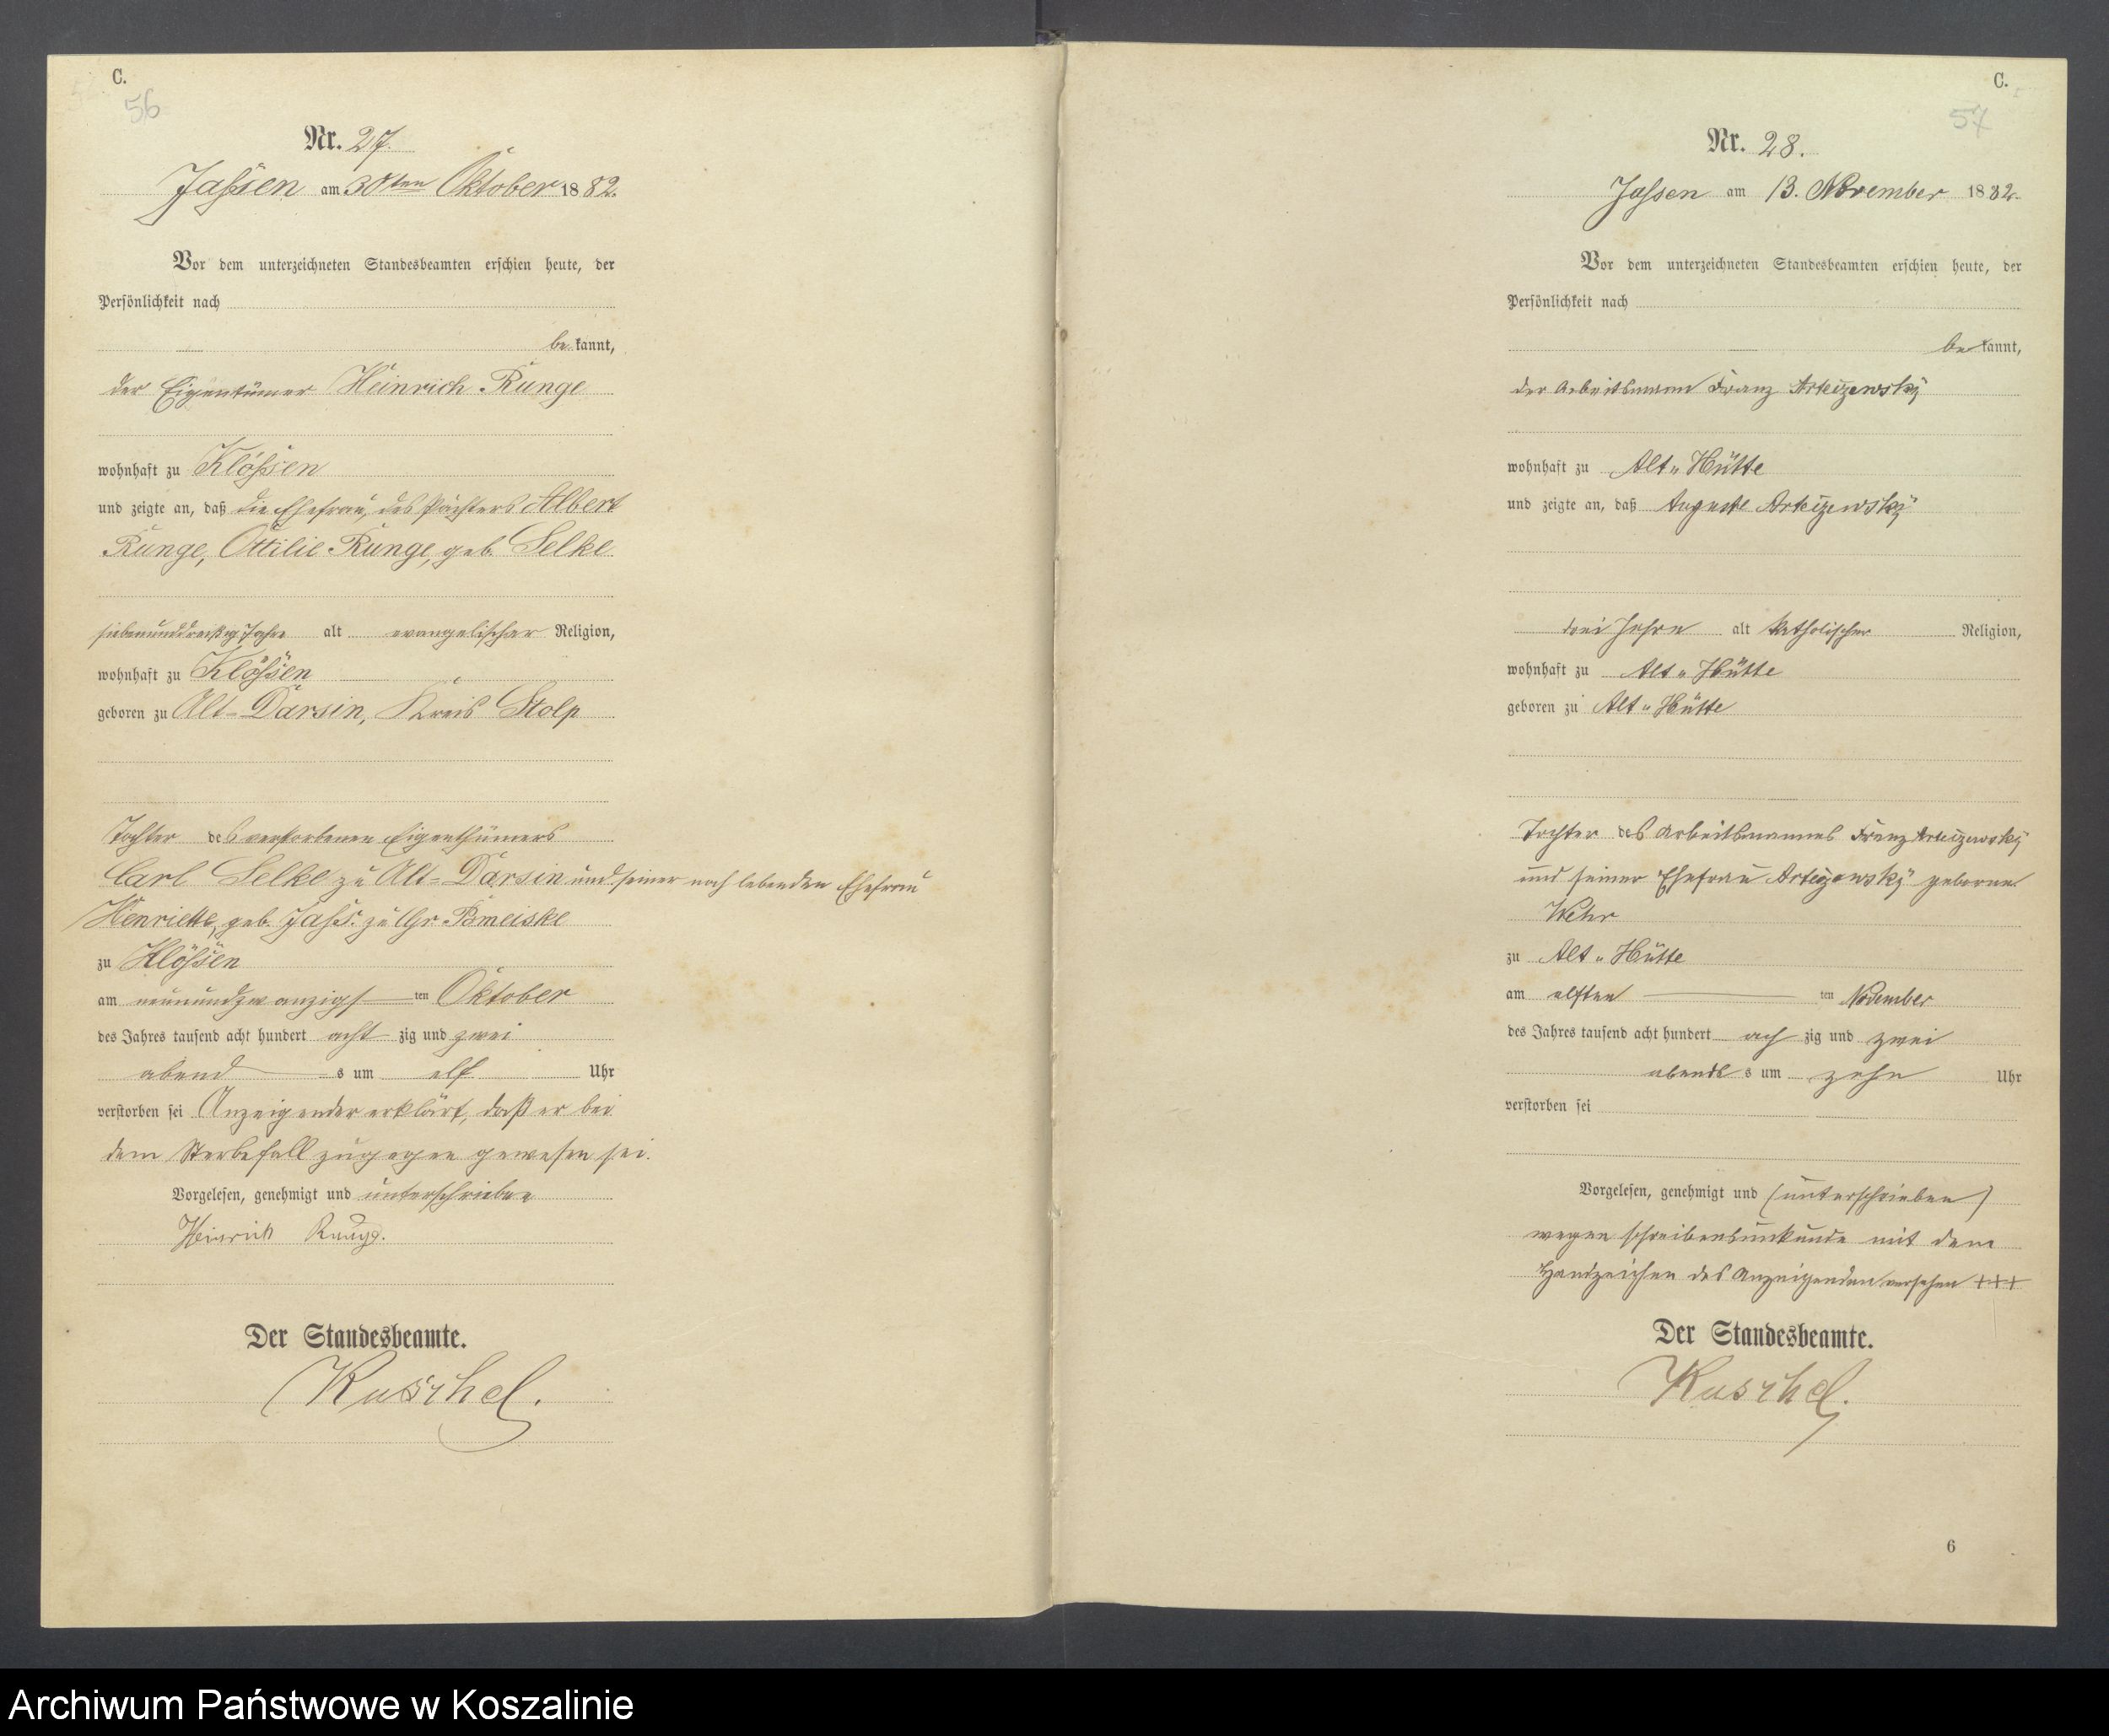 C.
56
Nr. 27.
Jassen am 30ten Oktober 1882.
Vor dem unterzeichneten Standesbeamten erschien heute, der
Persönlichkeit nach
be kannt,
der Eigentümer Heinrich Runge
wohnhaft zu Klössen
und zeigte an, daß die Ehefrau, des Pächters Albert
Runge, Ottilie Runge, geb. Selke
siebenunddreißig Jahre alt evangelischer Religion,
wohnhaft zu Klössen
geboren zu Alt-Darsin, Kreis Stolp
Tochter des verstorbenen Eigenthümers
Carl Selke zu Alt-Darsin und seiner noch lebenden Ehefrau
Henriette, geb. Jahs. zu Gr. Pomeiske
zu Klössen
am neunundzwanzigsten Oktober
des Jahres tausend acht hundert acht zig und zwei
abend s um elf Uhr
verstorben sei Anzeigender erklärt, daß er bei
dem Sterbefall zugegen gewesen sei.
Vorgelesen, genehmigt und unterschrieben
Heinrich Runge.
Der Standesbeamte.
Kuschel.
C.
57
Nr. 28.
Jassen am 13. November 1882.
Vor dem unterzeichneten Standesbeamten erschien heute, der
Persönlichkeit nach
be kannt,
der Arbeitsmann Franz Arteizewsky
wohnhaft zu Alt-Hütte
und zeigte an, daß Auguste Arteizewsky
drei Jahre alt katholischer Religion,
wohnhaft zu Alt-Hütte
geboren zu Alt-Hütte
Tochter des Arbeitsmannes Franz Arteizewsky
und seiner Ehefrau Arteizewsky geborne
Wehr
zu Alt-Hütte
am elften ten November
des Jahres tausend acht hundert ach zig und zwei
abends s um zehn Uhr
verstorben sei
Vorgelesen, genehmigt und (unterschrieben)
wegen schreibensunkunde mit dem
Handzeichen des Anzeigenden versehen +++
Der Standesbeamte.
Kuschel.
6
Archiwum Państwowe w Koszalinie